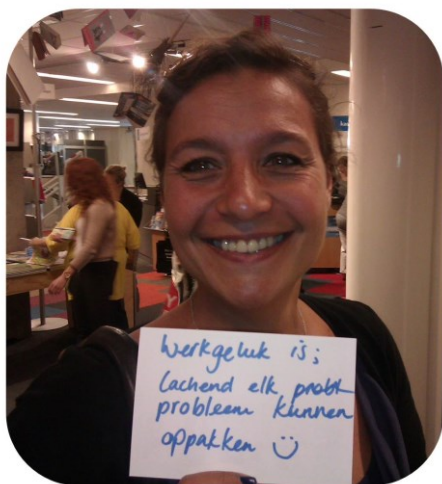 Werkgeluk is;
lachend elk probl
probleem kunnen
oppakken ü